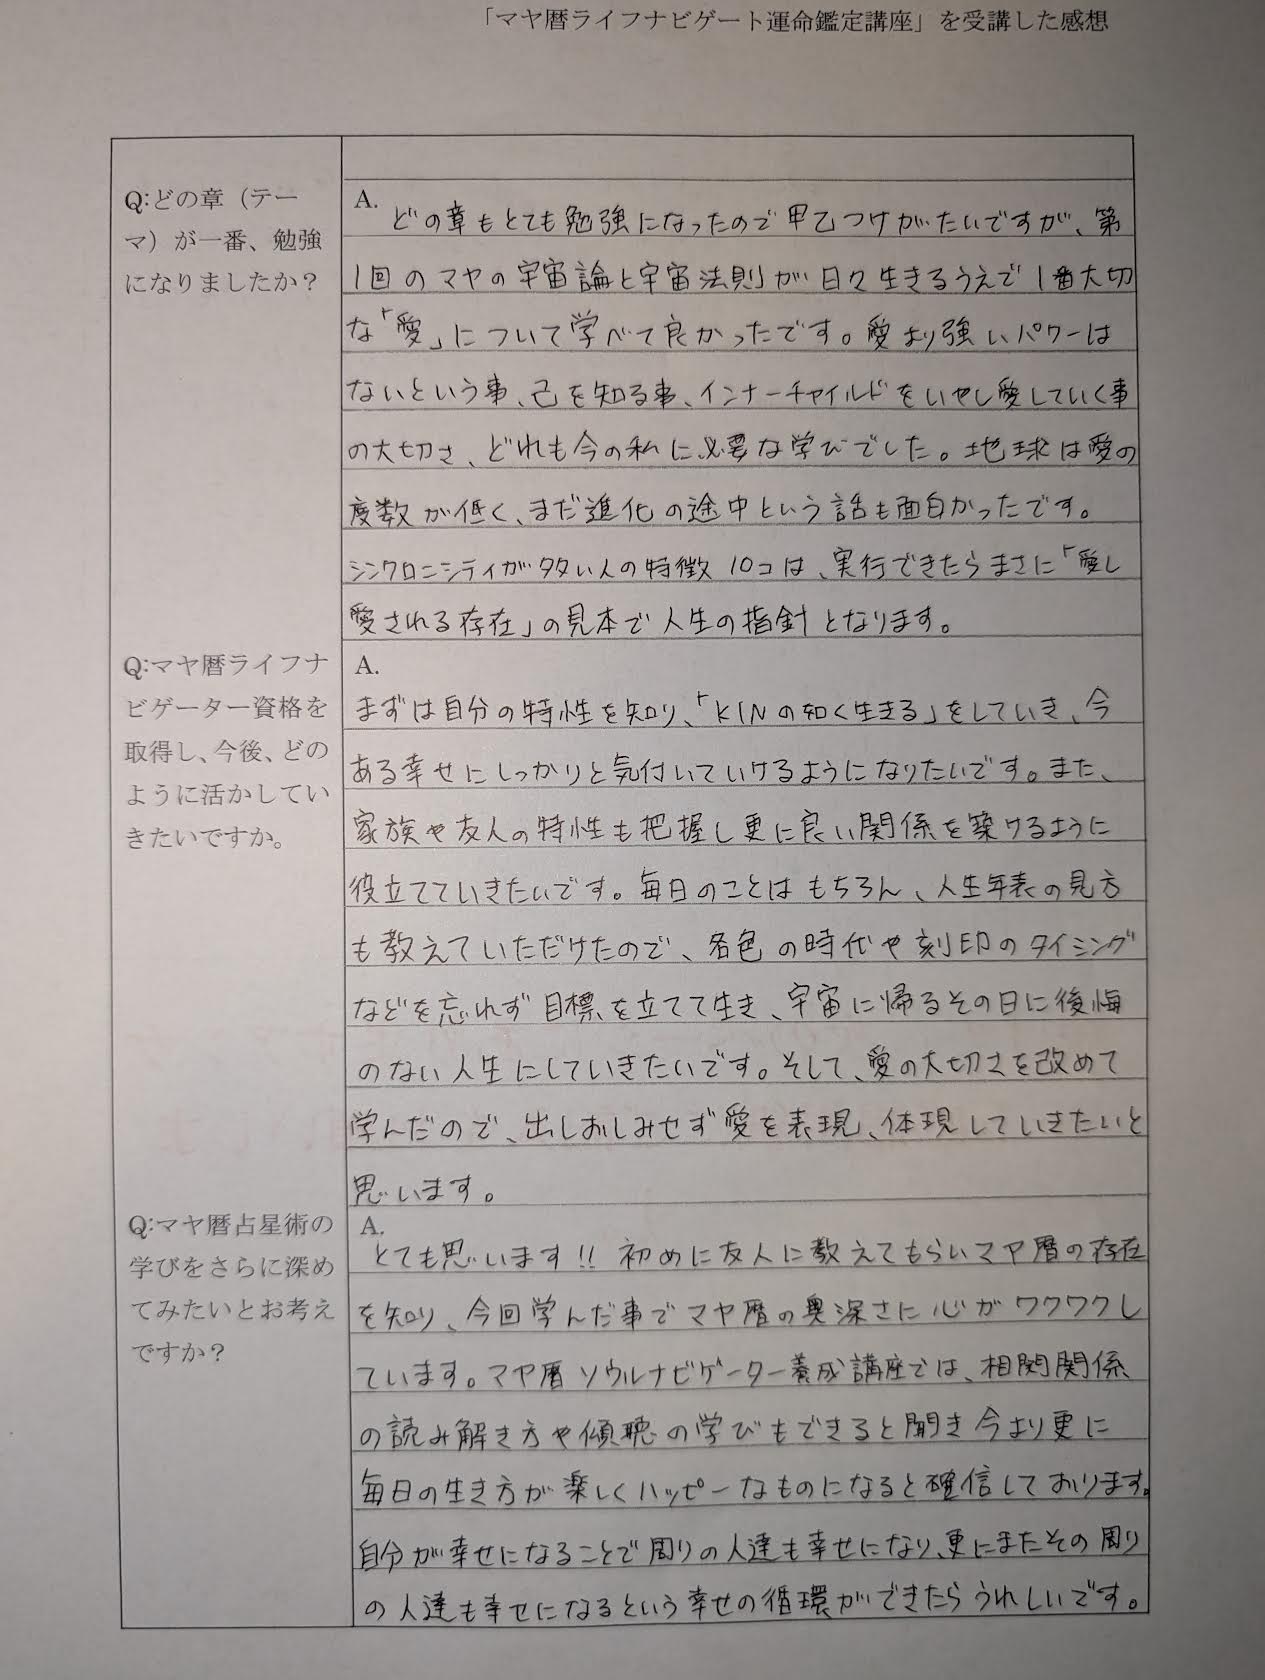 「マヤ暦ライフナビゲート運命鑑定講座」を受講した感想
Q:どの章（テー
マ）が一番、勉強
になりましたか？
A.
どの章もとても勉強になったので甲乙つけがたいですが、第
1回のマヤの宇宙論と宇宙法則が日々生きるうえで1番大切
な「愛」について学べて良かったです。愛より強いパワーは
ないという事、己を知る事、インナーチャイルドをいやし愛していく事
の大切さ、どれも今の私に必要な学びでした。地球は愛の
度数が低く、まだ進化の途中という話も面白かったです。
シンクロニシティが多い人の特徴10コは、実行できたらまさに「愛し
愛される存在」の見本で人生の指針となります。
Q:マヤ暦ライフナ
ビゲーター資格を
取得し、今後、どの
ように活かしてい
きたいですか。
A.
まずは自分の特性を知り、「KINの如く生きる」をしていき、今
ある幸せにしっかりと気付いていけるようになりたいです。また、
家族や友人の特性も把握し更に良い関係を築けるように
役立てていきたいです。毎日のことはもちろん、人生年表の見方
も教えていただけたので、各色の時代や刻印のタイミング
などを忘れず目標を立てて生き、宇宙に帰るその日に後悔
のない人生にしていきたいです。そして、愛の大切さを改めて
学んだので、出しおしみせず愛を表現、体現していきたいと
思います。
Q:マヤ暦占星術の
学びをさらに深め
てみたいとお考え
ですか？
A.
とても思います!! 初めに友人に教えてもらいマヤ暦の存在
を知り、今回学んだ事でマヤ暦の奥深さに心がワクワクし
ています。マヤ暦ソウルナビゲーター養成講座では、相関関係
の読み解き方や傾聴の学びもできると聞き今より更に
毎日の生き方が楽しくハッピーなものになると確信しております。
自分が幸せになることで周りの人達も幸せになり、更にまたその周り
の人達も幸せになるという幸せの循環ができたらうれしいです。